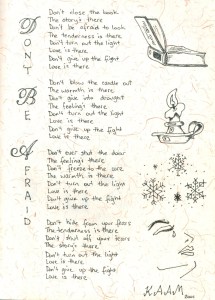 DON'T
BE
AFRAID
Don't close the book
The story's there
Don't be afraid to look
The tenderness is there
Don't turn out the light
Love is there
Don't give up the fight
Love is there
Don't blow the candle out
The warmth is there
Don't give into drought
The feeling's there
Don't turn out the light
Love is there
Don't give up the fight
Love is there
Don't ever shut the door
The feeling's there
Don't freeze to the core
The warmth is there
Don't turn out the light
Love is there
Don't give up the fight
Love is there
Don't hide from your fears
The tenderness is there
Don't shut off your tears
The story's there
Don't turn out the light
Love is there
Don't give up the fight
Love is there
K.A.A.M.